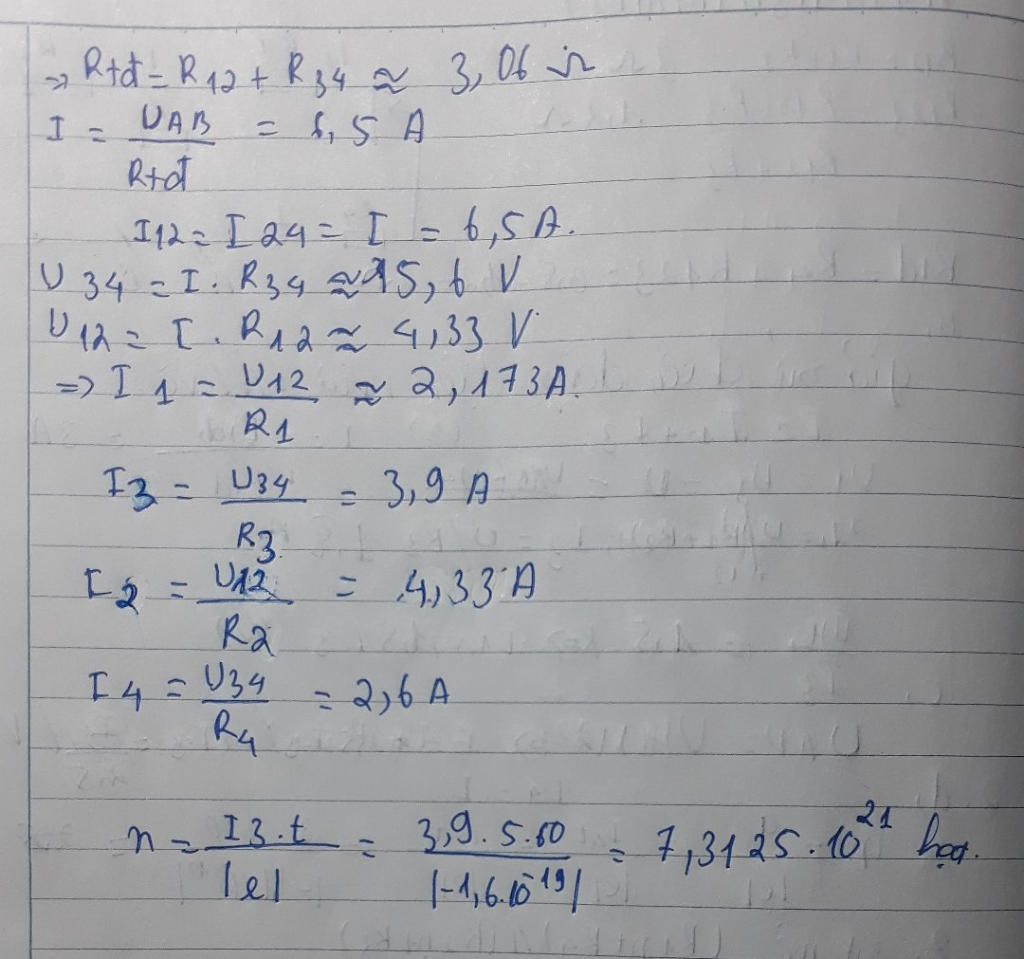 => Rtđ = R12 + R34 ≈ 3,06 Ω
I = UAB / Rtđ = 6,5 A
I12 = I24 = I = 6,5A.
U34 = I . R34 ≈ 15,6 V
U12 = I . R12 ≈ 4,33 V
=> I1 = U12 / R1 ≈ 2,173A.
I3 = U34 / R3 = 3,9 A
I2 = U12 / R2 = 4,33 A
I4 = U34 / R4 = 2,6 A
n = I3.t / |e| = 3,9.5.60 / |-1,6.10^-19| = 7,3125.10^21 hạt.